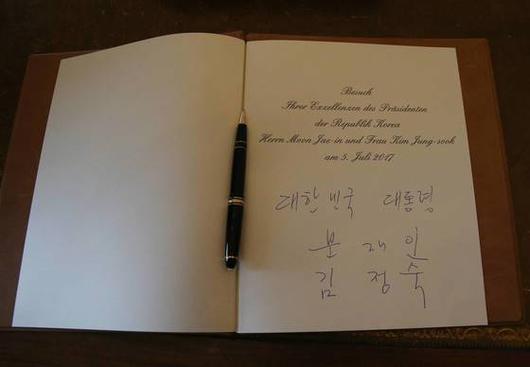 Besuch
Ihrer Exzellenzen des Präsidenten
der Republik Korea
Herrn Moon Jae-in und Frau Kim Jung-sook
am 5. Juli 2017
대한민국 대통령
문 재 인
김 정 숙